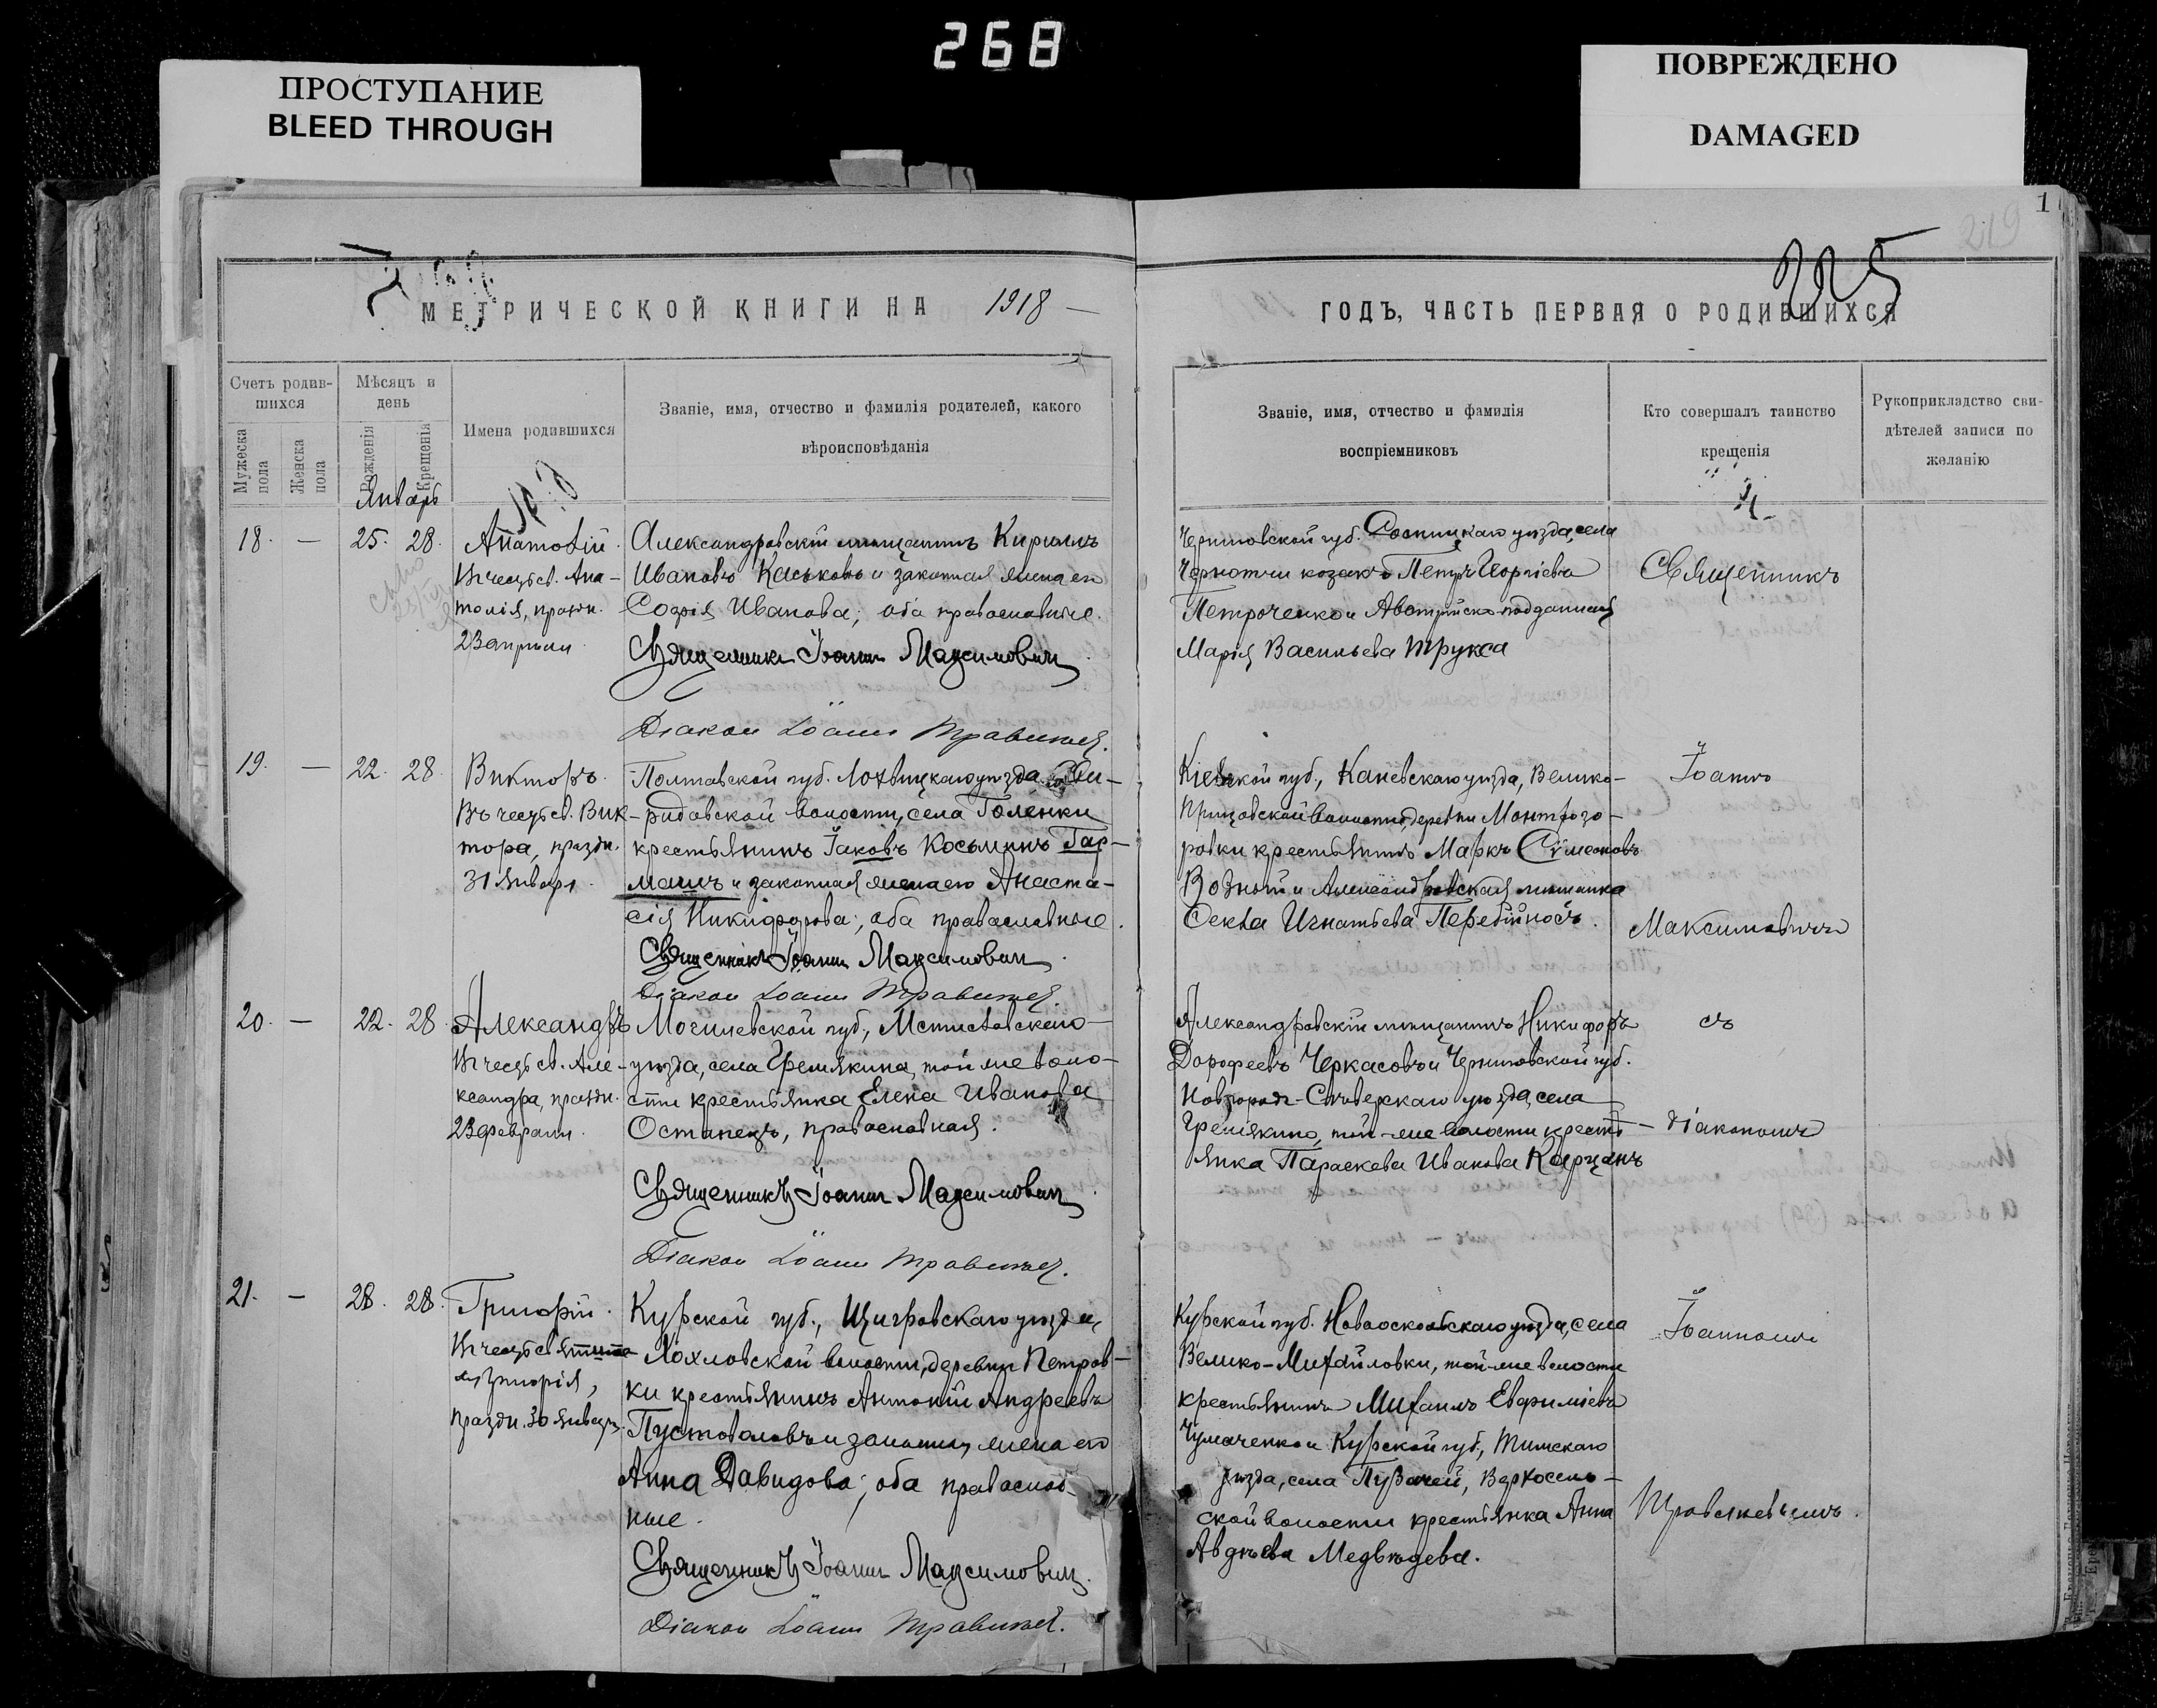 268
ПРОСТУПАНИЕ
BLEED THROUGH
ПОВРЕЖДЕНО
DAMAGED
1
219
225
МЕТРИЧЕСКОЙ КНИГИ НА 1918
ГОДЪ, ЧАСТЬ ПЕРВАЯ О РОДИВШИХСЯ
Счетъ родив-
шихся
Мужеска пола
Женска пола
Мѣсяцъ и
день
Рожденія
Крещенія
Имена родившихся
Званіе, имя, отчество и фамилія родителей, какого
вѣроисповѣданія
Званіе, имя, отчество и фамилія
воспріемниковъ
Кто совершалъ таинство
крещенія
Рукоприкладство сви-
дѣтелей записи по
желанію
Январь
18. — 25. 28.
Анатолій.
Въ честь св. Ана-
толія, праздн.
23 апрѣля.
Александровскій мѣщанинъ Кириллъ
Ивановъ Каськовъ и законная жена его
Софія Иванова; оба православные.
Священникъ Іоаннъ Максимович
Діакон Іоанн
Черниговской губ. Сосницкаго уѣзда, села
козакъ Петръ Георгіевъ
Петроченко и Австрійско-подданная
Марія Васильева Трукса
Священникъ
19. — 22. 28.
Викторъ.
Въ честь св. Вик-
тора, праздн.
31 января.
Полтавской губ. Лохвицкаго уѣзда,
ридовской волости, села Голенки
крестьянинъ Іаковъ Косьминъ Гар-
машъ и законная жена его Анаста-
сія Никифорова; оба православные.
Священникъ Іоаннъ Максимович.
Діакон Іоанн
Кіевской губ., Каневскаго уѣзда, Велико-
Прицковской волости, деревни Монтрезо-
ровки крестьянинъ Маркъ Сѵмеоновъ
Возный и Александровская мѣщанка
Секва Игнатьева Перебійносъ.
Іоаннъ
Максимовичъ
20. — 22. 28.
Александръ
Въ честь св. Але-
ксандра, праздн.
23 февраля.
Могилевской губ., Мстиславскаго
уѣзда, села Гремякина, той же воло-
сти крестьянка Елена Иванова
Останецъ, православная.
Священникъ Іоаннъ Максимович
Діакон Іоанн
Александровскій мѣщанинъ Никифоръ
Дорофеевъ Черкасовъ и Черниговской губ.
Новгородъ-Сѣверскаго уѣзда, села
Гремякино, той-же волости кресть-
янка Параскева Иванова Карцанъ
съ
діакономъ
21. — 28. 28.
Григорій.
Въ честь
Григорія,
праздн. 30 января.
Курской губ., Щигровскаго уѣзда,
Лохловской волости, деревни Петров-
ки крестьянинъ Антоній Андреевъ
Пустоваловъ и законная жена его
Анна Давидова; оба православ-
ные.
Священникъ Іоаннъ Максимович.
Діакон Іоанн
Курской губ. Новооскольскаго уѣзда, села
Велико-Михайловки, той-же волости
крестьянинъ Михаилъ Евфиміевъ
Чумаченко и Курской губ., Тимскаго
уѣзда, села Пузачей, Верхосель-
ской волости крестьянка Анна
Авдѣева Медвѣдева.
Іоанномъ